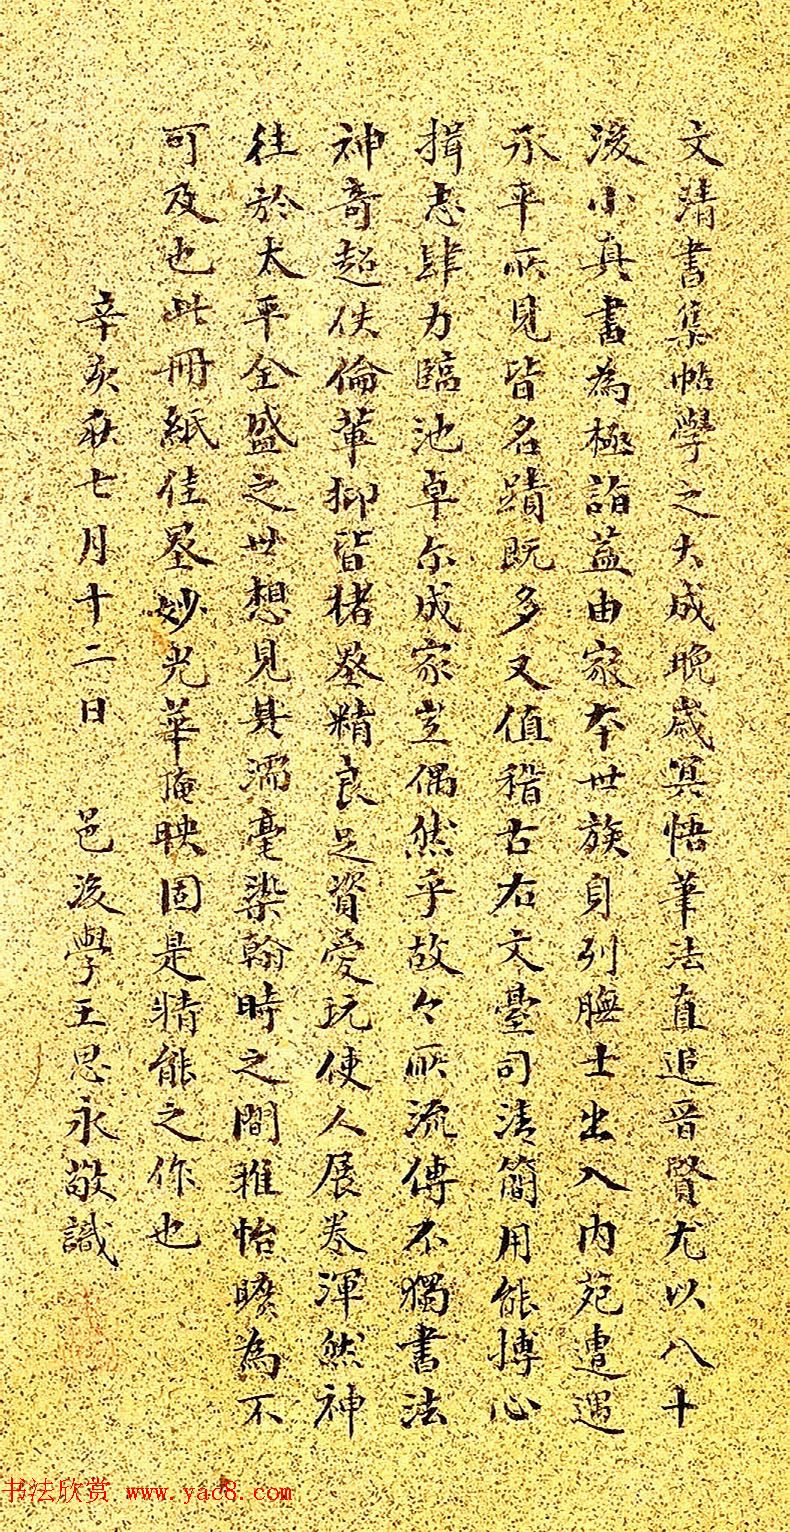 文清書集帖學之大成晚歲冥悟筆法直追晉賢尤以八十
後小真書為極詣蓋由家本世族身列膴士出入內苑遭遇
承平所見皆名蹟既多又值稽古右文臺司清簡用能摶心
揖志肆力臨池卓尔成家豈偶然乎故今所流傳不獨書法
神奇超佚倫輩抑皆楮墨精良足資愛玩使人展卷渾然神
往於太平全盛之世想見其濡毫染翰時之間雅怡曠為不
可及也此冊紙佳墨妙光華掩映固是精能之作也
辛亥秋七月十二日 邑後學王思永敬識
书法欣赏 www.yac8.com